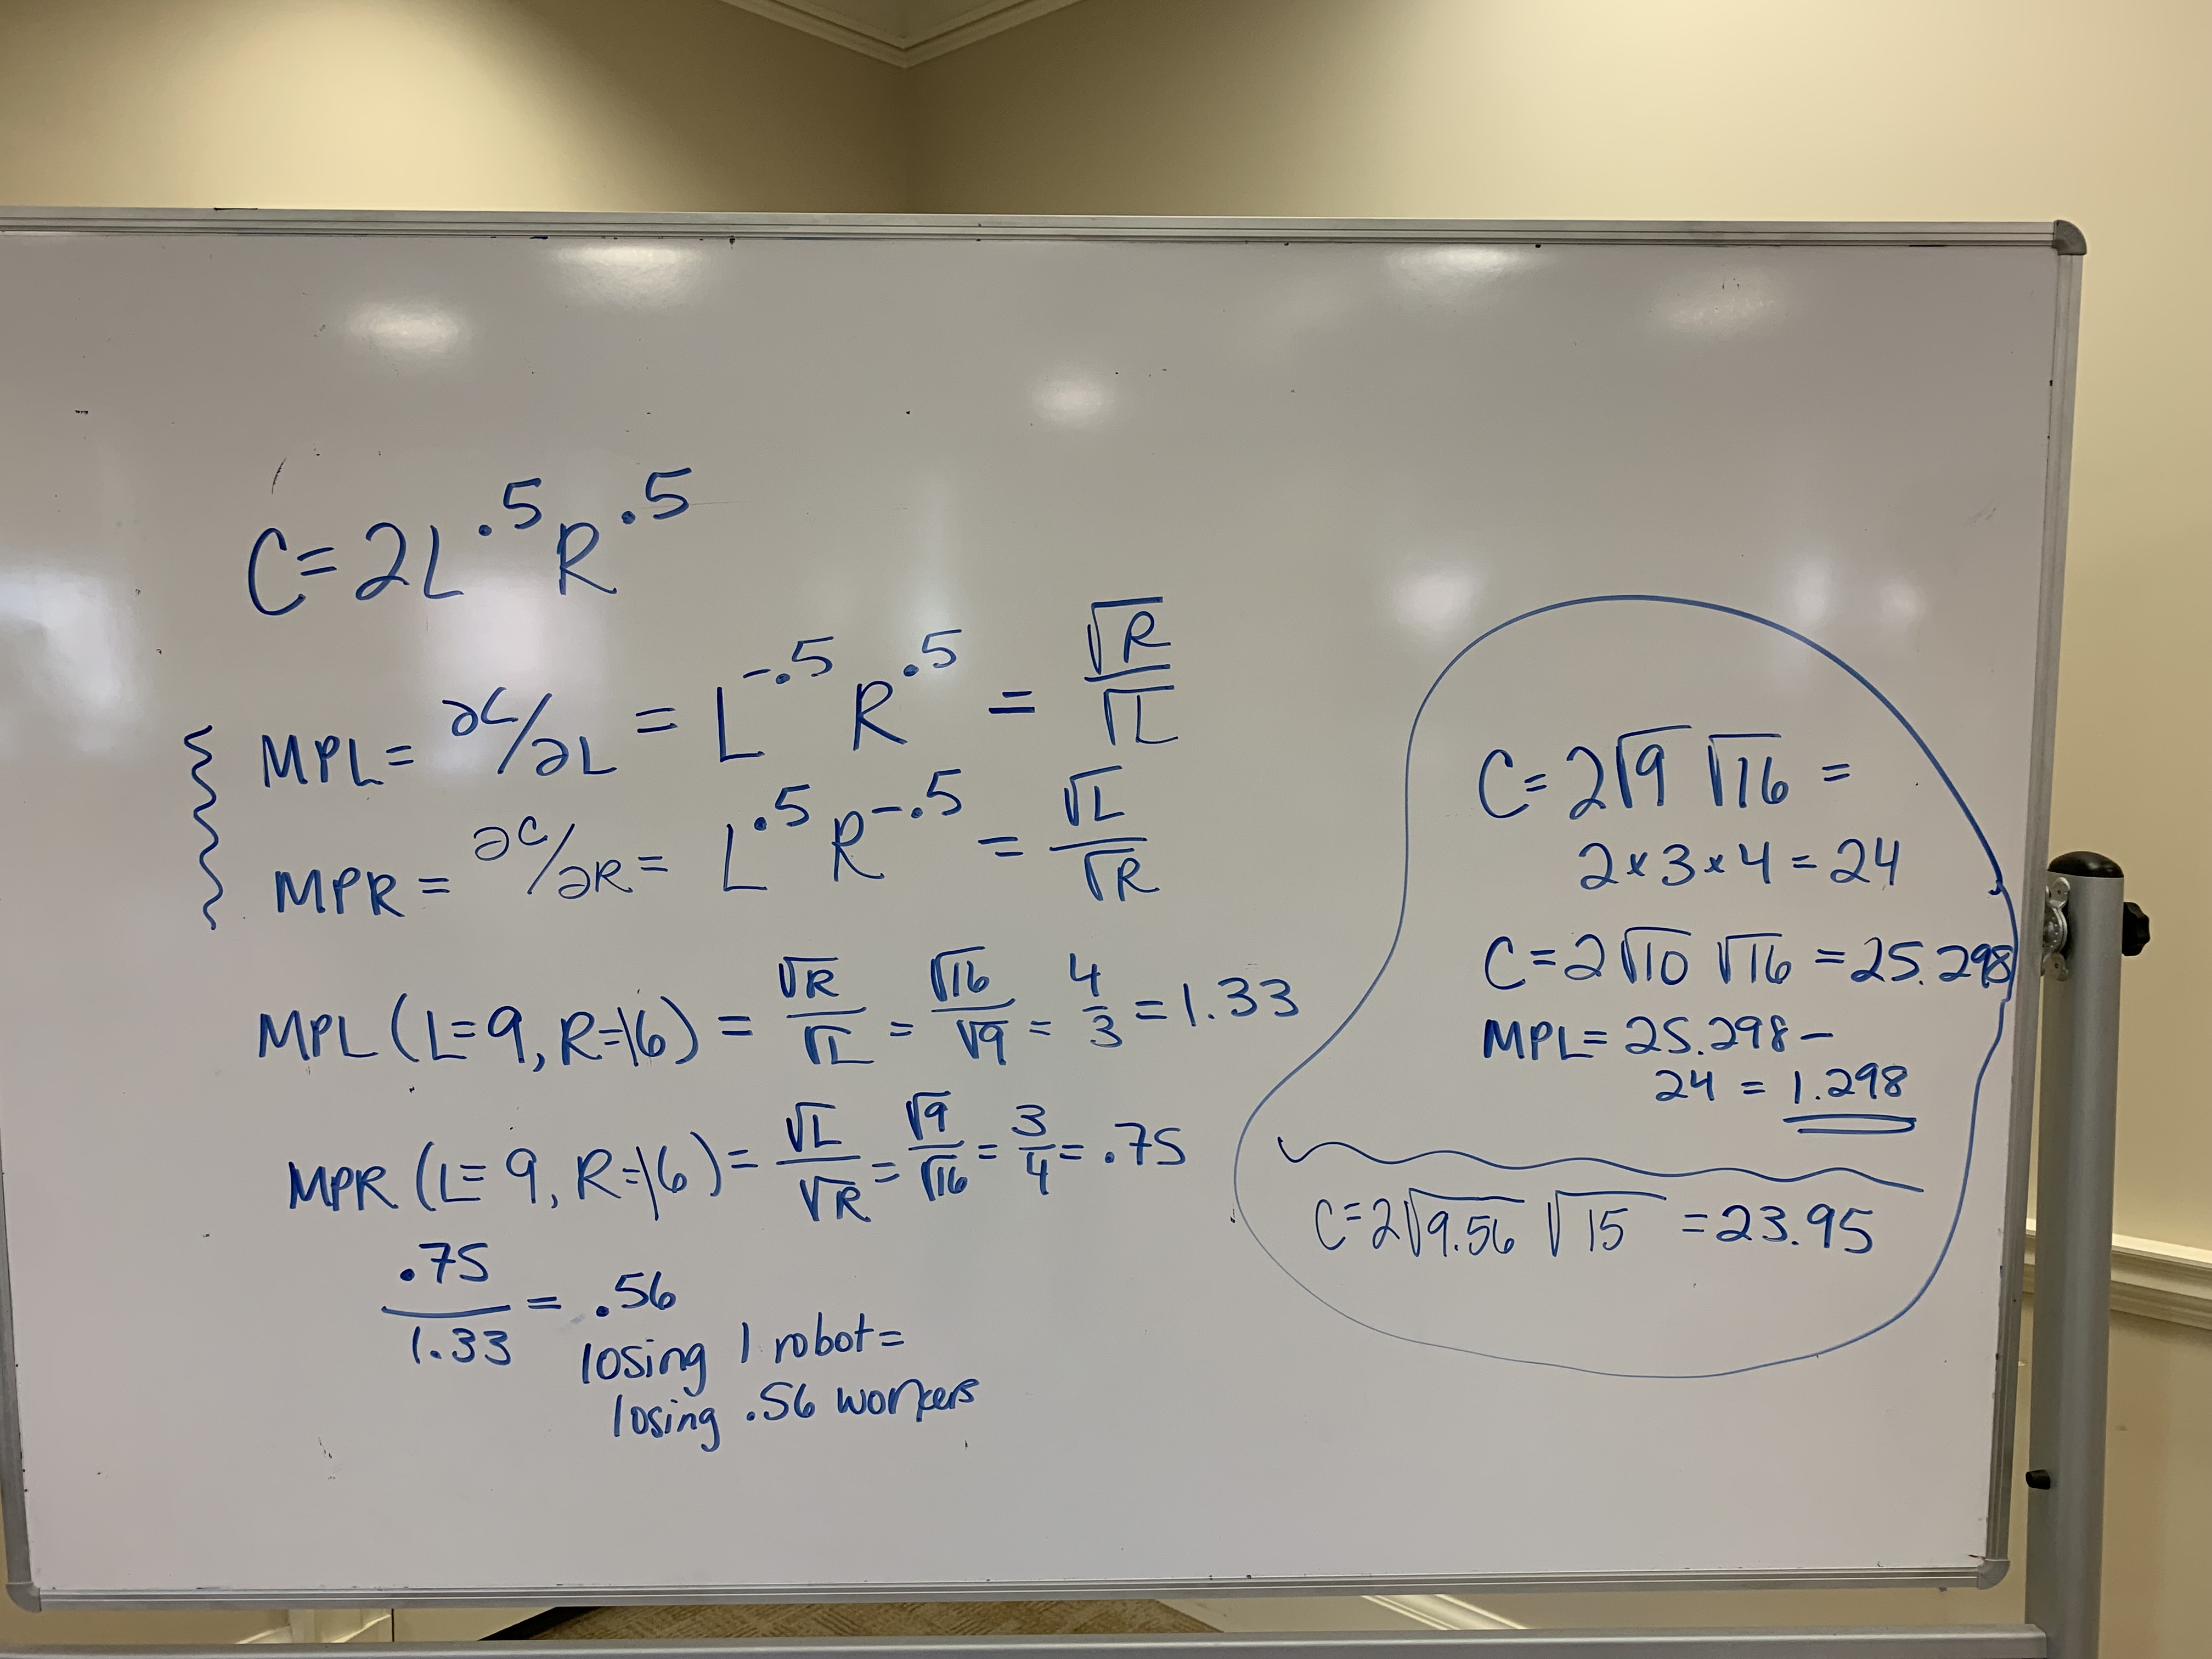 C = 2L^.5 R^.5
MPL = ∂C/∂L = L^-.5 R^.5 = √R/√L
MPR = ∂C/∂R = L^.5 R^-.5 = √L/√R
MPL (L=9, R=16) = √R/√L = √16/√9 = 4/3 = 1.33
MPR (L=9, R=16) = √L/√R = √9/√16 = 3/4 = .75
.75/1.33 = .56
losing 1 robot =
losing .56 workers
C = 2√9 √16 =
2 × 3 × 4 = 24
C = 2√10 √16 = 25.298
MPL = 25.298 –
24 = 1.298
C = 2√9.56 √15 = 23.95